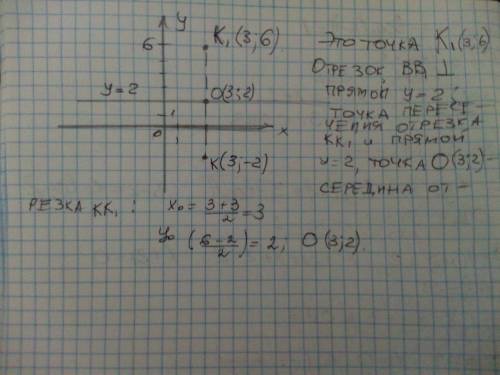 y
6
K₁(3;6)
y=2
O(3;2)
1
0
1
x
K(3;-2)
ЭТО ТОЧКА K₁(3;6)
ОТРЕЗОК BB₁ ⊥
ПРЯМОЙ y=2;
ТОЧКА ПЕРЕСЕ-
ЧЕНИЯ ОТРЕЗКА
KK₁ И ПРЯМОЙ
y=2, ТОЧКА O(3;2)-
СЕРЕДИНА ОТ-
РЕЗКА KK₁: x₀ = (3+3)/2 = 3
y₀ (6-2/2) = 2; O(3;2).